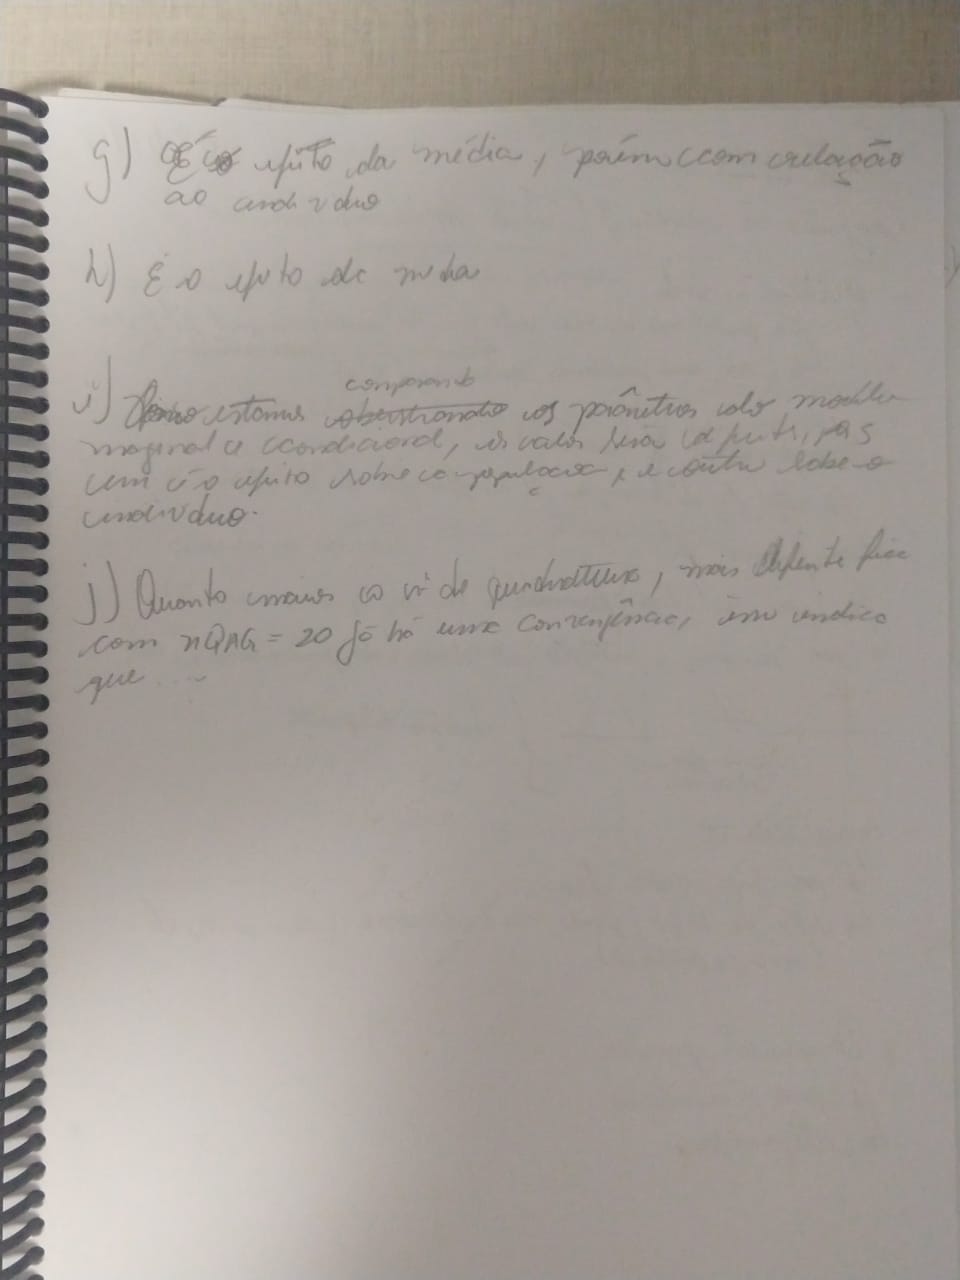 g) É o efeito da média, porém com relação
ao indivíduo
h) É o efeito de media
i) estamos comparando os parâmetros do modelo
marginal e condicional, os valores
um é o efeito sobre a população, e outro sobre o
indivíduo.
j) Quanto maior o nº de quadratura, mais diferente fica
com nQAG = 20 já há uma convergência, indica
que ...